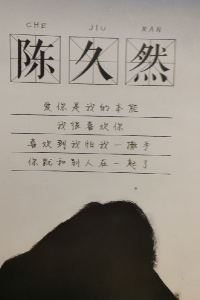 CHE JIU RAN
陈久然
爱你是我的本能
我很喜欢你
喜欢到我怕我一撒手
你就和别人在一起了